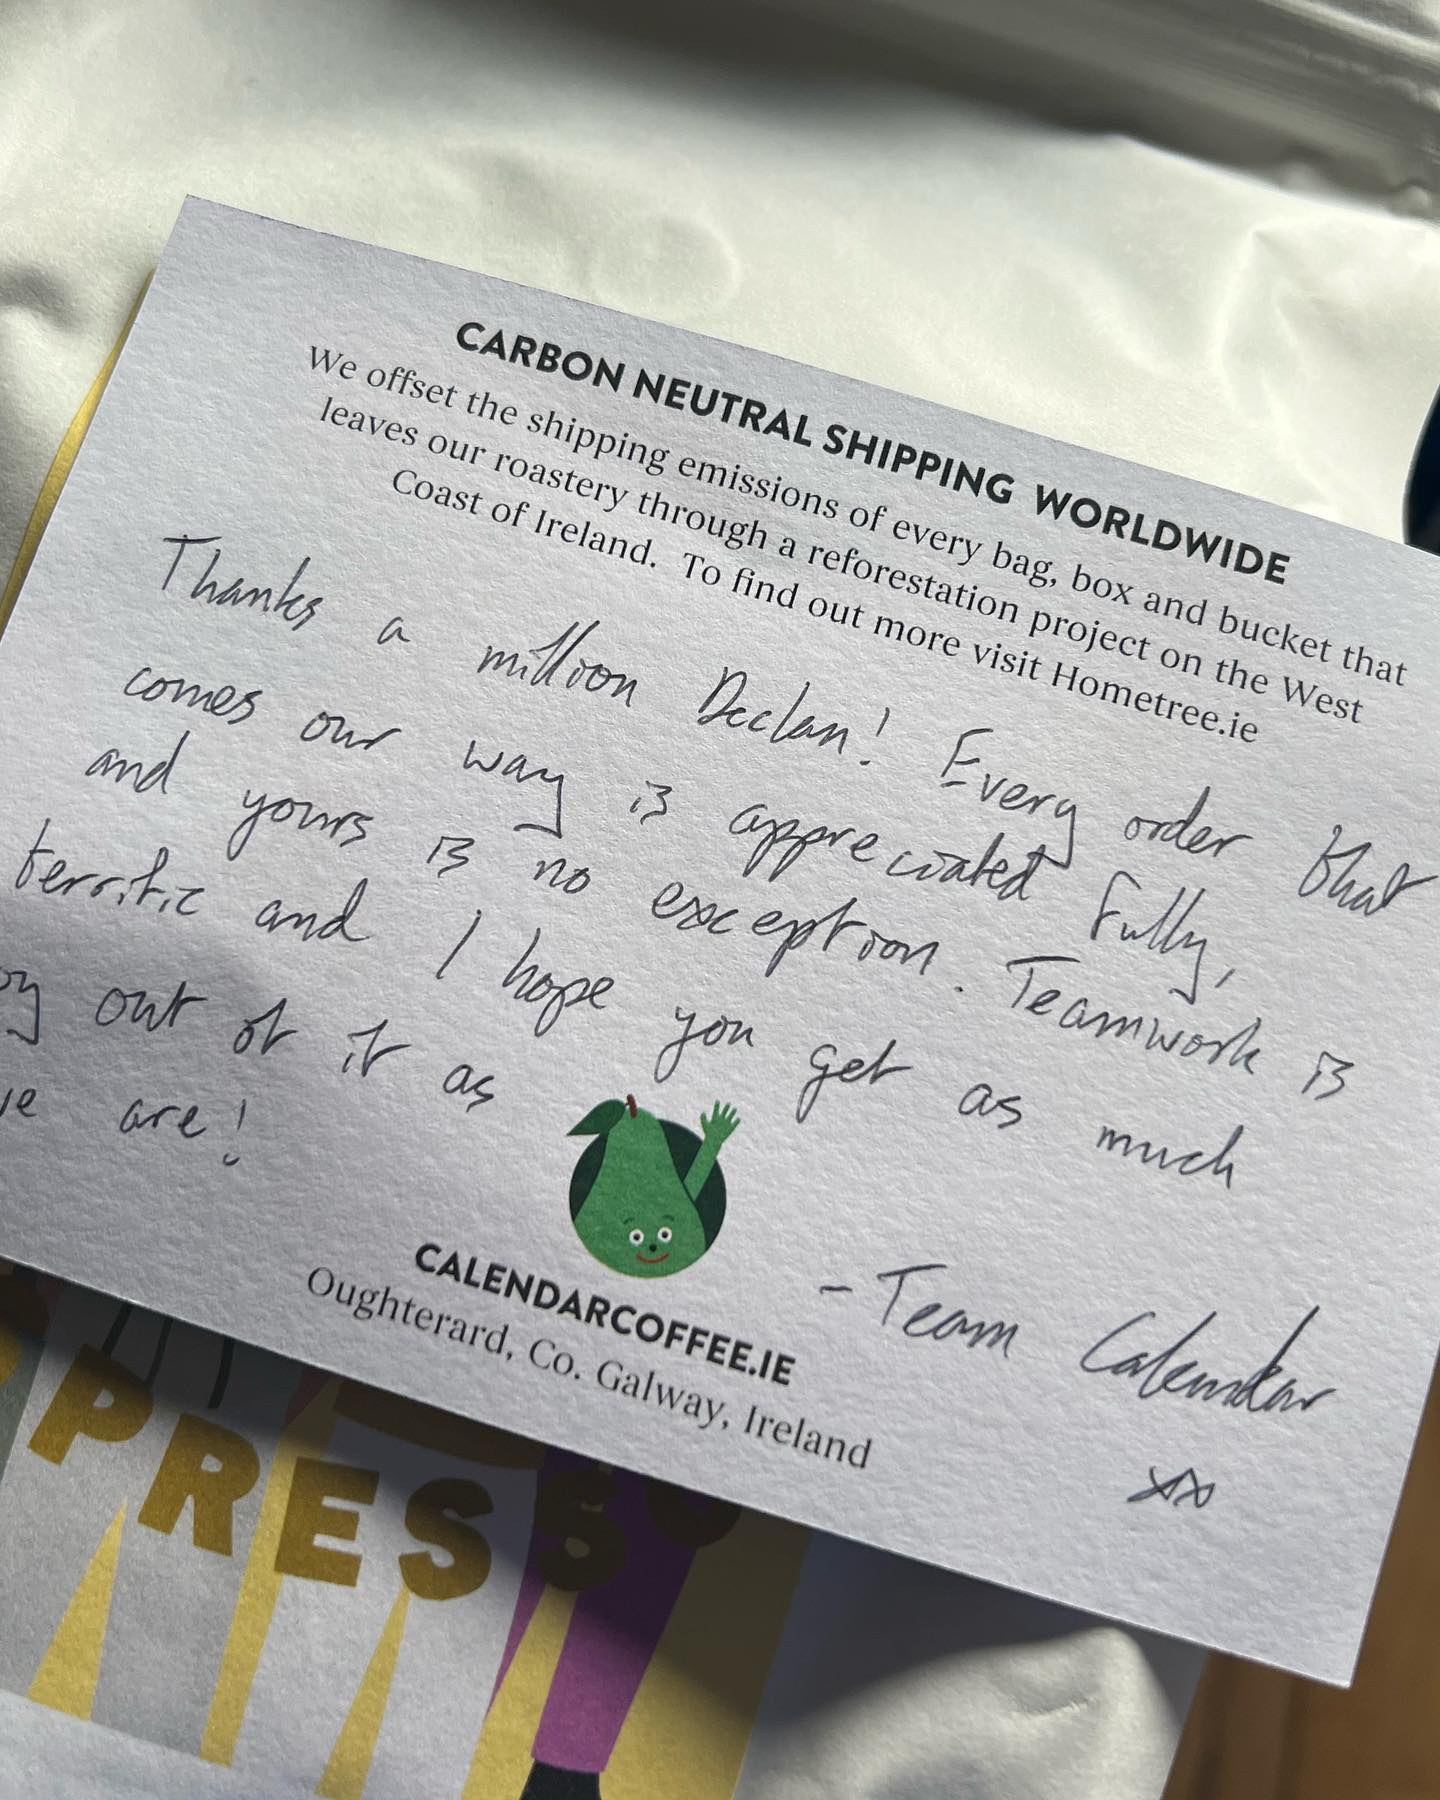 CARBON NEUTRAL SHIPPING WORLDWIDE
We offset the shipping emissions of every bag, box and bucket that
leaves our roastery through a reforestation project on the West
Coast of Ireland. To find out more visit Hometree.ie
Thanks a million Declan! Every order that
comes our way is appreciated fully,
and yours is no exception. Teamwork is
terrific and I hope you get as much
out of it as
are!
- Team Calendar
xx
CALENDARCOFFEE.IE
Oughterard, Co. Galway, Ireland
PRESSO